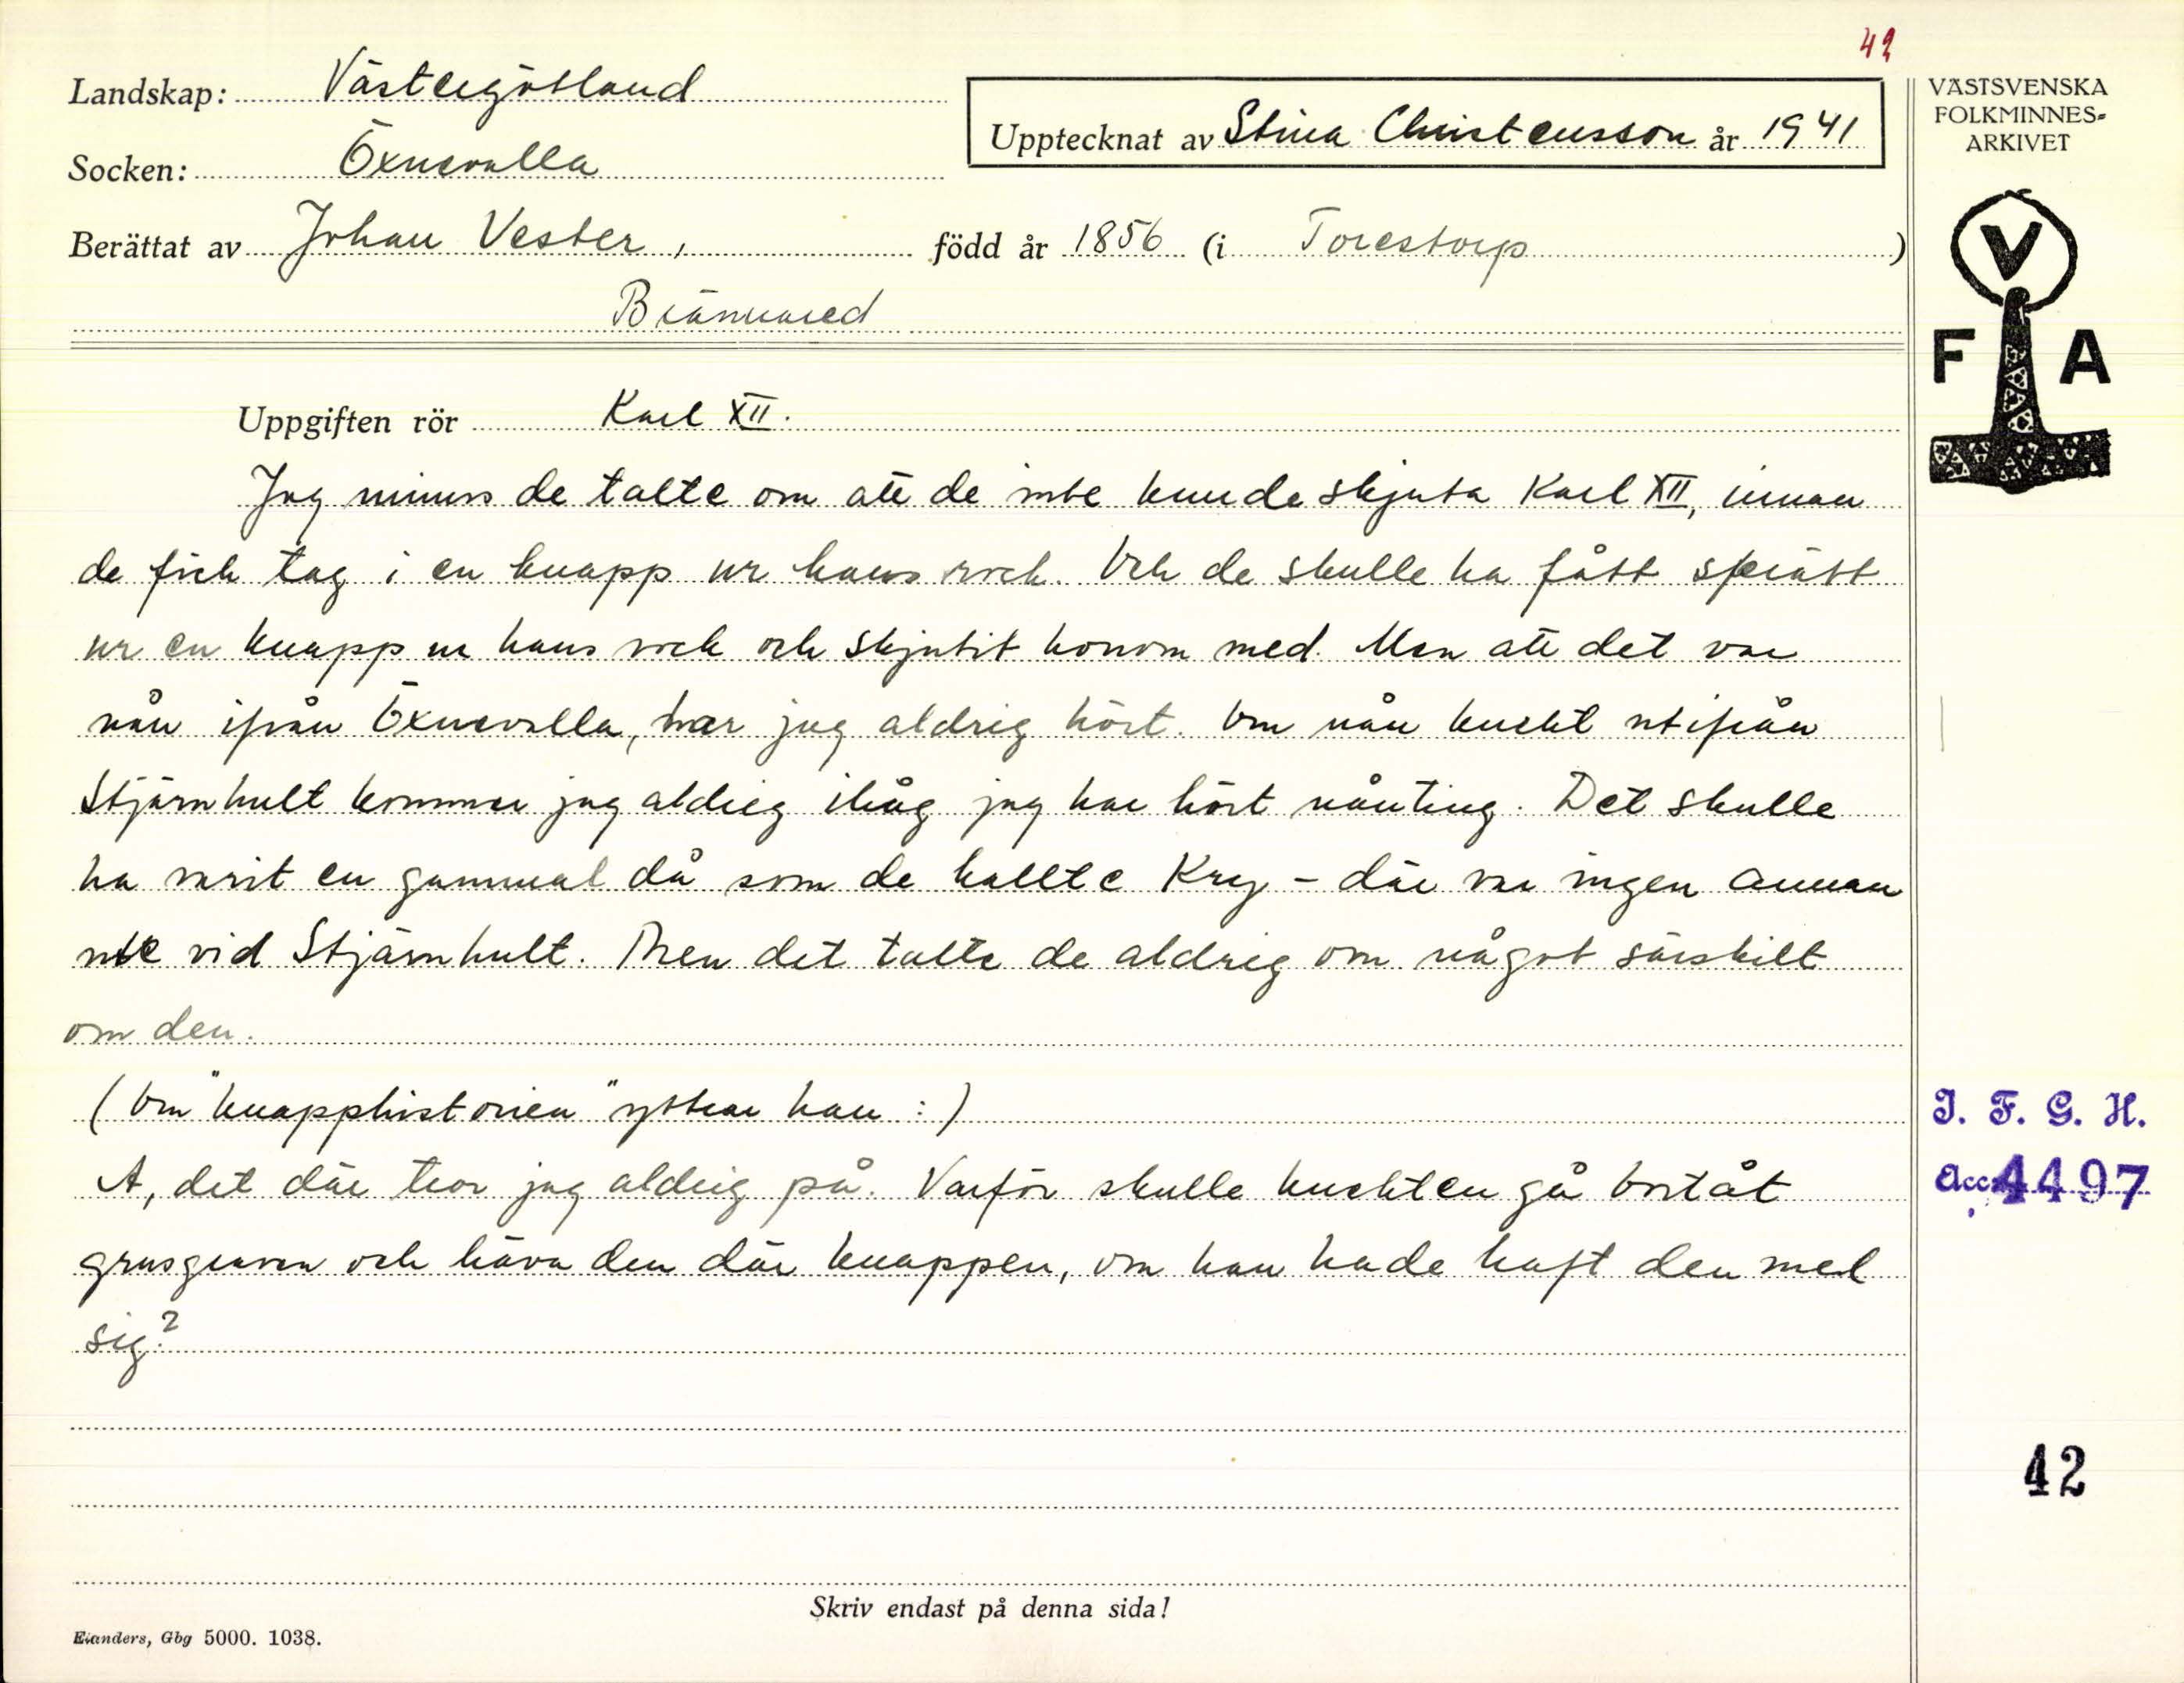 42
Landskap: Västergötland
Upptecknat av Stina Christensson år 1941
Socken: Öxnevalla
Berättat av Johan Vester, född år 1856 (i Torestorp)
Brännared
VÄSTSVENSKA
FOLKMINNES=
ARKIVET
V
F A
Uppgiften rör Karl XII.
Jag minns de talte om att de inte kunde skjuta Karl XII, innan
de fick tag i en knapp ur hans rock. Och de skulle ha fått sprätt
ur en knapp ur hans rock och skjutit honom med. Men att det var
nån ifrån Öxnevalla, har jag aldrig hört. Om nån knekt utifrån
Stjärnhult kommer jag aldrig ihåg jag har hört nånting. Det skulle
ha varit en gammal då som de kallte Kry – där var ingen annan
ute vid Stjärnhult. Men det talte de aldrig om något särskilt
om den.
(Om "knapphistorien" yttrar han:)
A, det där tror jag aldrig på. Varför skulle knekten gå bortåt
grusgraven och häva den där knappen, om han hade haft den med
sig?
I. F. G. H.
Acc. 4497
42
Skriv endast på denna sida!
Elanders, Gbg 5000. 1038.